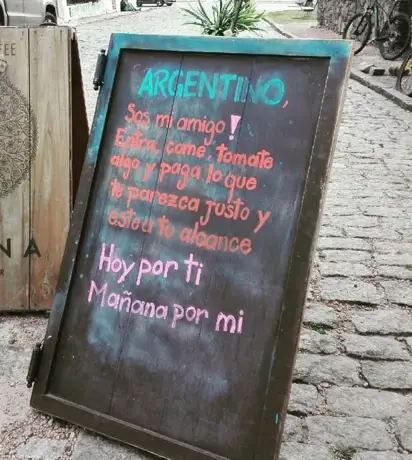 FEE
NA
ARGENTINO,
Sos mi amigo!
Entra, comé, tomate
algo y paga lo que
te parezca justo y
este a tu alcance
Hoy por ti
Mañana por mi